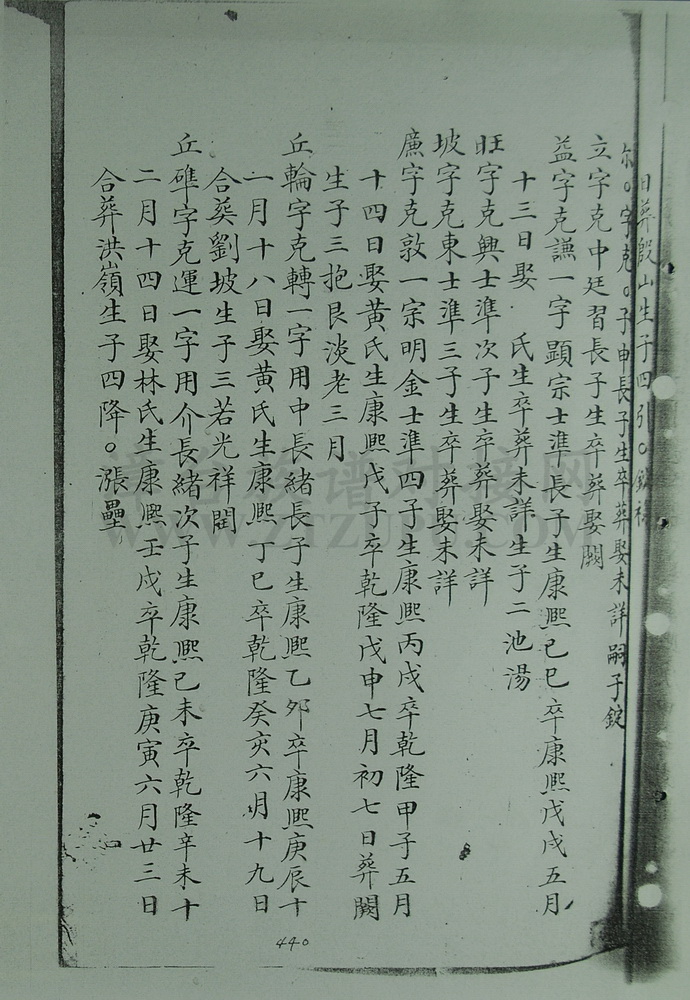 日葬殷山生子四引○
字克○子申長子生卒葬娶未詳嗣子錠
立字克中廷習長子生卒葬娶闕
益字克謙一字顯宗士準長子生康熙己巳卒康熙戊戌五月
十三日娶 氏生卒葬未詳生子二池湯
旺字克興士準次子生卒葬娶未詳
坡字克東士準三子生卒葬娶未詳
廉字克敦一宗明金士準四子生康熙丙戌卒乾隆甲子五月
十四日娶黃氏生康熙戊子卒乾隆戊申七月初七日葬闕
生子三抱艮淡老三月
丘輪字克轉一字用中長緒長子生康熙乙夘卒康熙庚辰十
一月十八日娶黃氏生康熙丁巳卒乾隆癸亥六月十九日
合葬劉坡生子三若光祥閏
丘碓字克運一字用介長緒次子生康熙己未卒乾隆辛未十
二月十四日娶林氏生康熙壬戌卒乾隆庚寅六月廿三日
合葬洪嶺生子四降○漲壘
440
WWW.ZTZUPU.COM